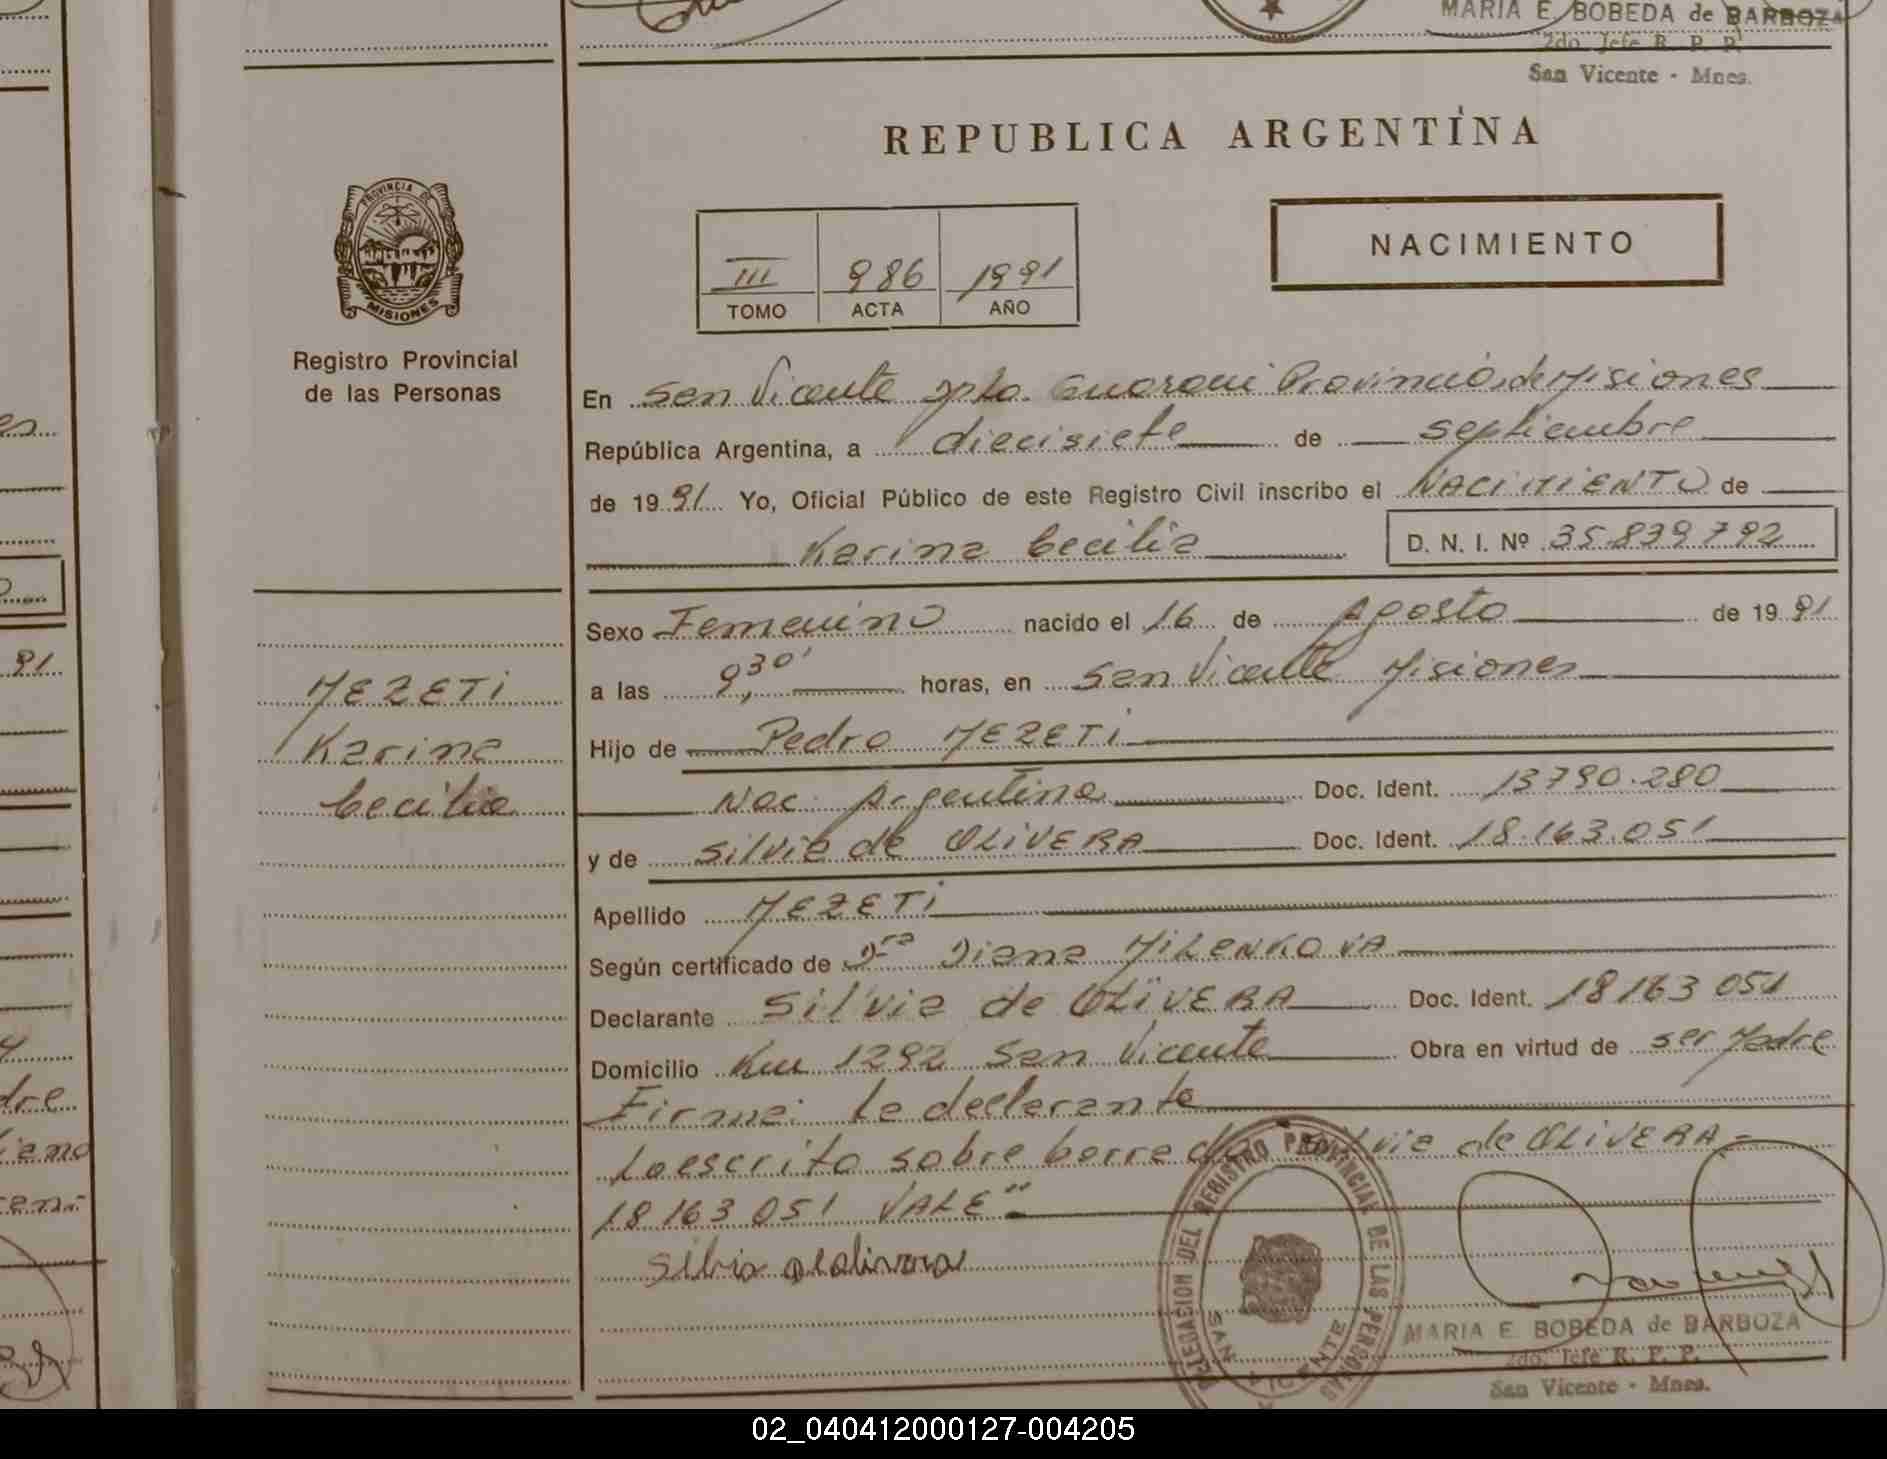 MARIA E. BOBEDA de BARBOZA
2do. Jefe R. P. P.
San Vicente - Mnes.
REPUBLICA ARGENTINA
PROVINCIA DE MISIONES
III 986 1991
TOMO ACTA AÑO
NACIMIENTO
Registro Provincial
de las Personas
En San Vicente Dpto. Guarani Provincia de Misiones
República Argentina, a diecisiete de septiembre
de 1991 Yo, Oficial Público de este Registro Civil inscribo el NACIMIENTO de
Karina Cecilia D. N. I. Nº 35.839.792
Sexo Femenino nacido el 16 de Agosto de 1991
a las 9,30' horas, en San Vicente Misiones
Hijo de Pedro MEZETI
Nac. Argentina Doc. Ident. 13790.280
y de Silvia de OLIVERA Doc. Ident. 18.163.051
Apellido MEZETI
Según certificado de Dra Diana MILENKOVA
Declarante Silvia de OLIVERA Doc. Ident. 18163051
Domicilio Km 1292 San Vicente Obra en virtud de ser Madre
Firma: La declarante
Lo escrito sobre borrado Silvia de OLIVERA-
18163051 VALE"
MEZETI
Karina
Cecilia
DELEGACION DEL REGISTRO PROVINCIAL DE LAS PERSONAS
SAN VICENTE
MARIA E. BOBEDA de BARBOZA
2do. Jefe R. P. P.
San Vicente - Mnes.
02_040412000127-004205